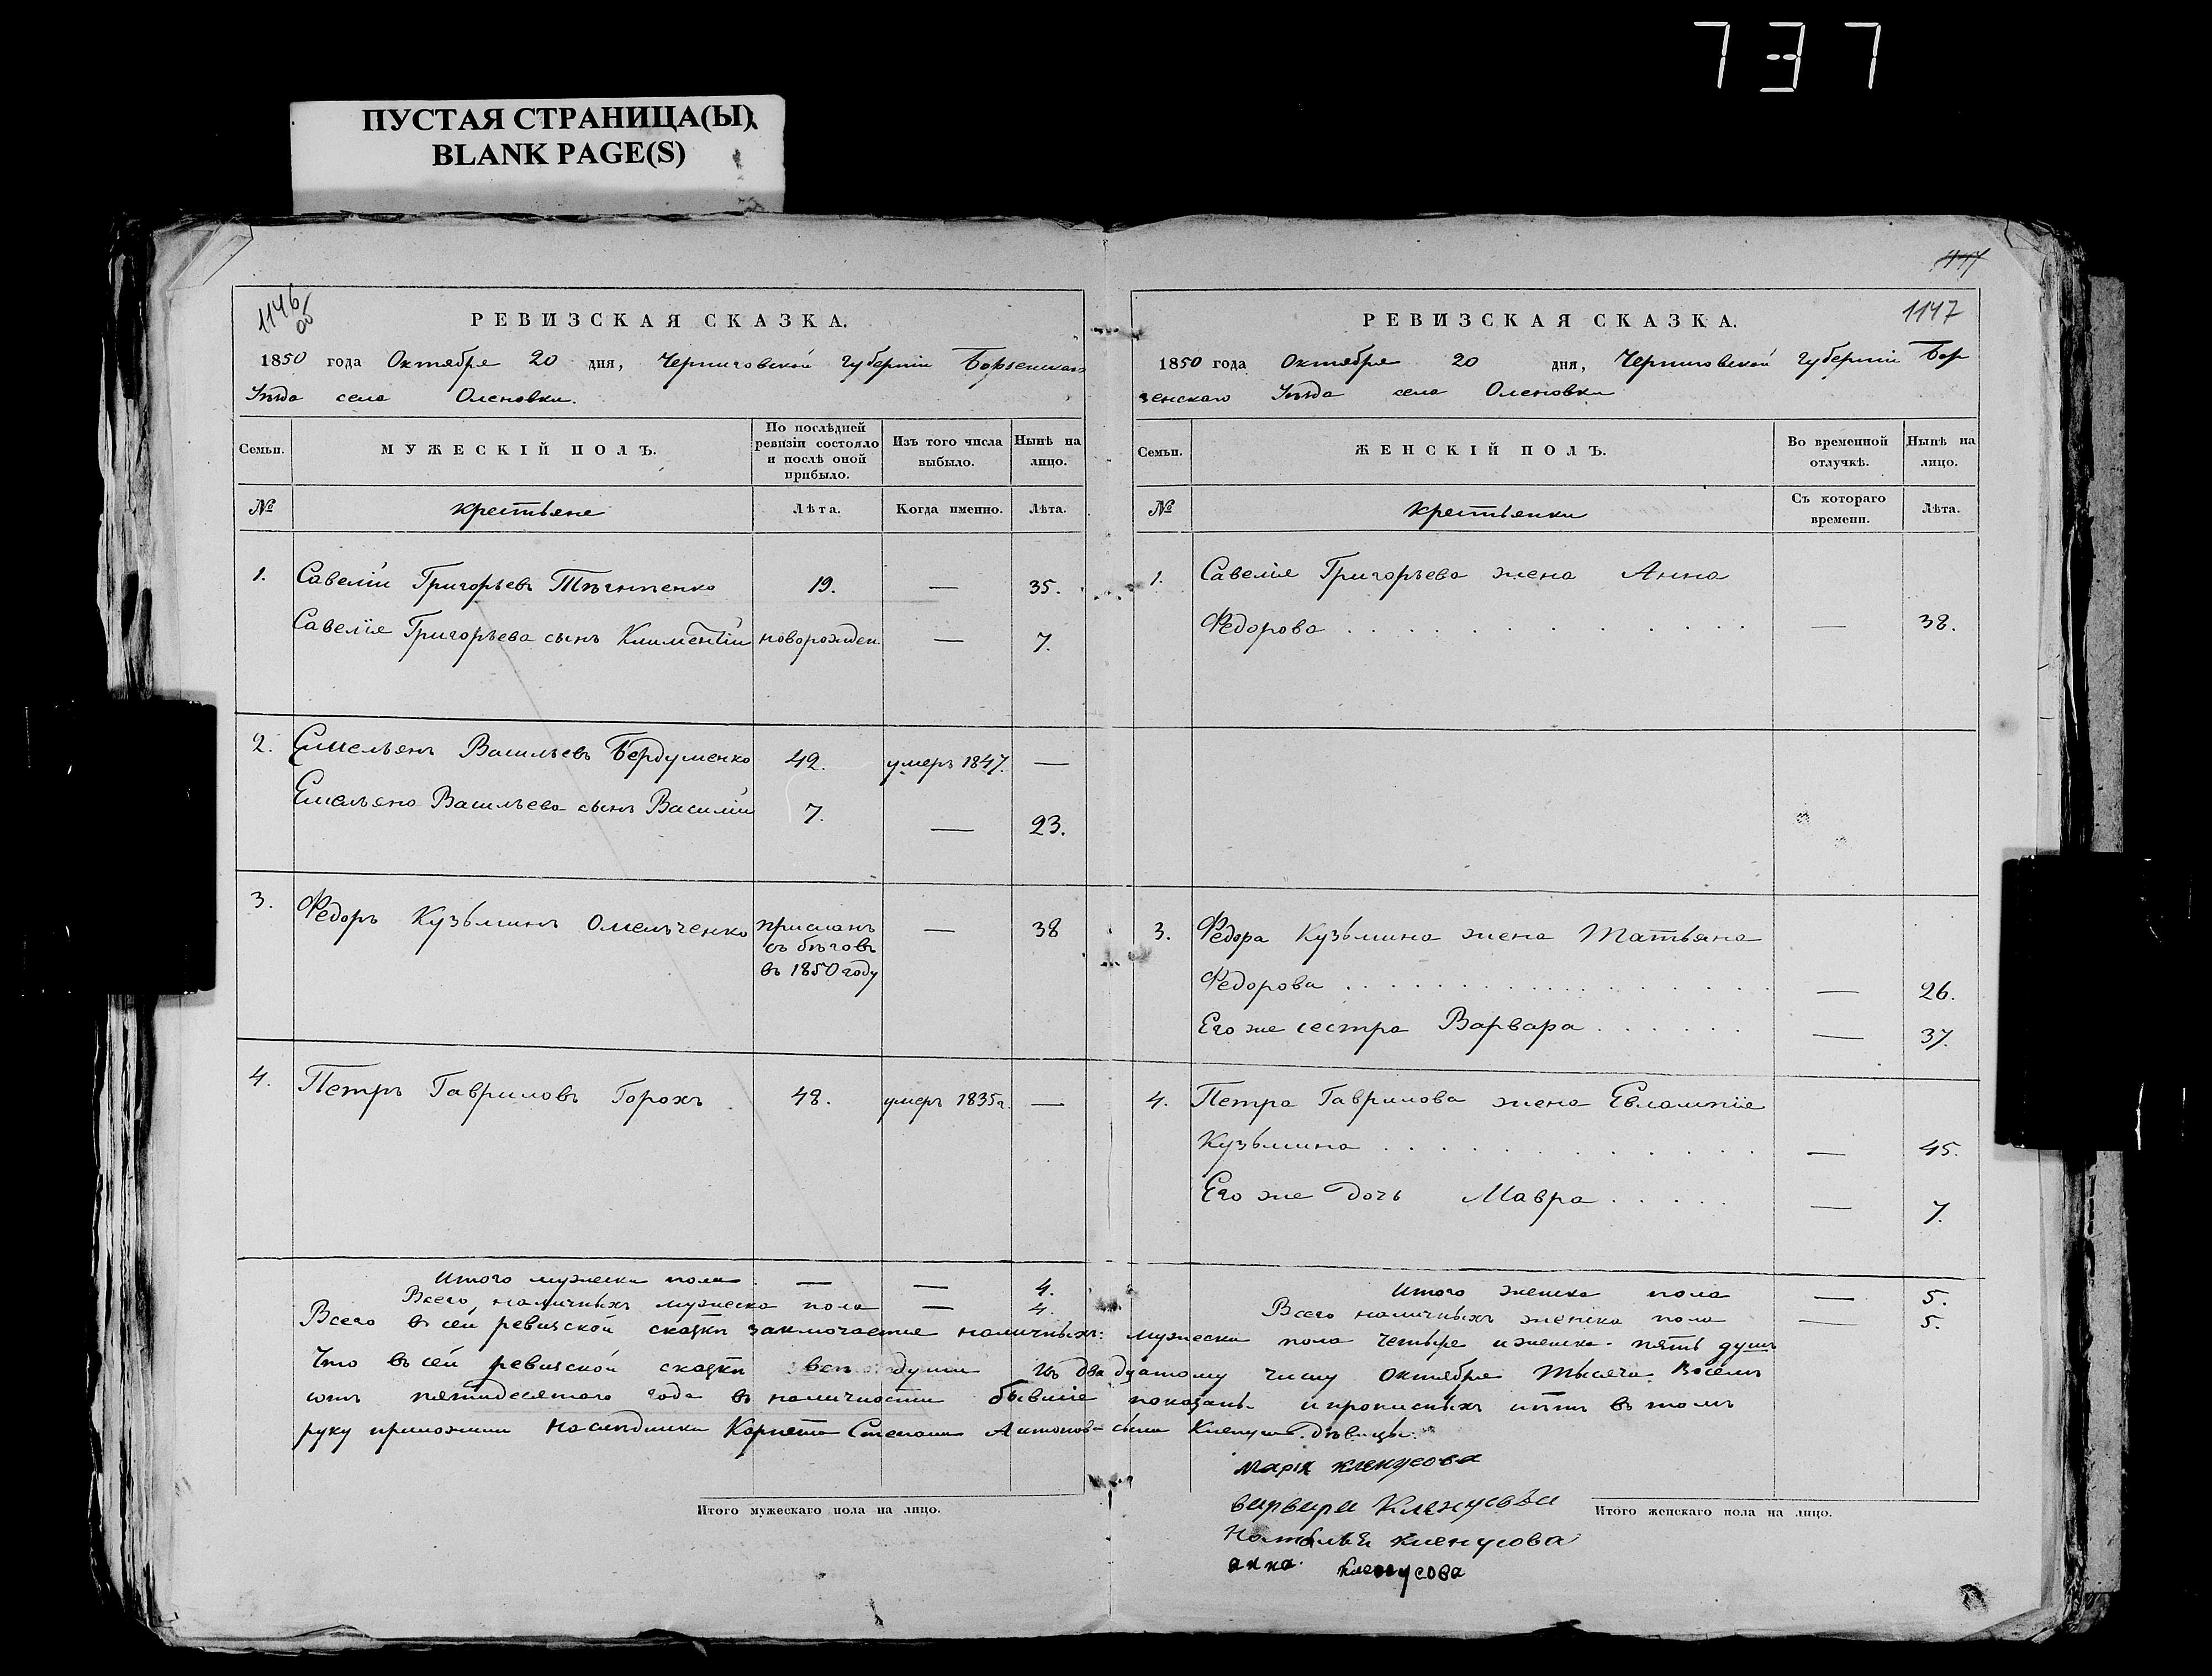 737
ПУСТАЯ СТРАНИЦА(Ы)
BLANK PAGE(S)
1146
об
РЕВИЗСКАЯ СКАЗКА.
1850 года Октября 20 дня, Черниговской Губерніи Борзенскаго
Уѣзда села Оленовки.
Семьи.
МУЖЕСКІЙ ПОЛЪ.
По послѣдней ревизіи состояло и послѣ оной прибыло.
Изъ того числа выбыло.
Нынѣ на лицо.
№
крестьяне
Лѣта.
Когда именно.
Лѣта.
1. Савелій Григорьевъ 19. — 35.
Савелія Григорьева сынъ Климентій новорожден. — 7.
2. Емельянъ Васильевъ Бердуменко 42. умеръ 1847. —
Емельяна Васильева сынъ Василій 7. — 23.
3. Федоръ Кузьминъ Омельченко присланъ — 38
съ бѣговъ
въ 1850 году
4. Петръ Гавриловъ Горохъ 48. умеръ 1835 г. —
Итого мужеска пола — — 4.
Всего наличныхъ мужеска пола — 4.
1147
РЕВИЗСКАЯ СКАЗКА.
1850 года Октября 20 дня, Черниговской Губерніи Бор
зенскаго Уѣзда села Оленовки
Семьи.
ЖЕНСКІЙ ПОЛЪ.
Во временной отлучкѣ.
Нынѣ на лицо.
№
крестьянки
Съ котораго времени.
Лѣта.
1. Савелія Григорьева жена Анна
Федорова — 38.
3. Федора Кузьмина жена Татьяна
Федорова — 26.
Его же сестра Варвара — 37.
4. Петра Гаврилова жена Евлампія
Кузьмина — 45.
Его же дочь Мавра — 7.
Итого женска пола — 5.
Всего наличныхъ женска пола — 5.
Всего въ сей ревизской сказкѣ заключается наличныхъ: мужеска пола четыре и женска пять душъ
Что въ сей ревизской сказкѣ всѣ души къ двадцатому числу Октября тысяча восемь
сотъ пятидесятаго года въ наличности бывшіе показаны и прописныхъ нѣтъ въ томъ
руку приложили наслѣдники Корнета Степана Антонова сына Кленуса дѣвицы:
марія кленусова
варвара Кленусова
Наталья кленусова
анна кленусова
Итого мужескаго пола на лицо.
Итого женскаго пола на лицо.